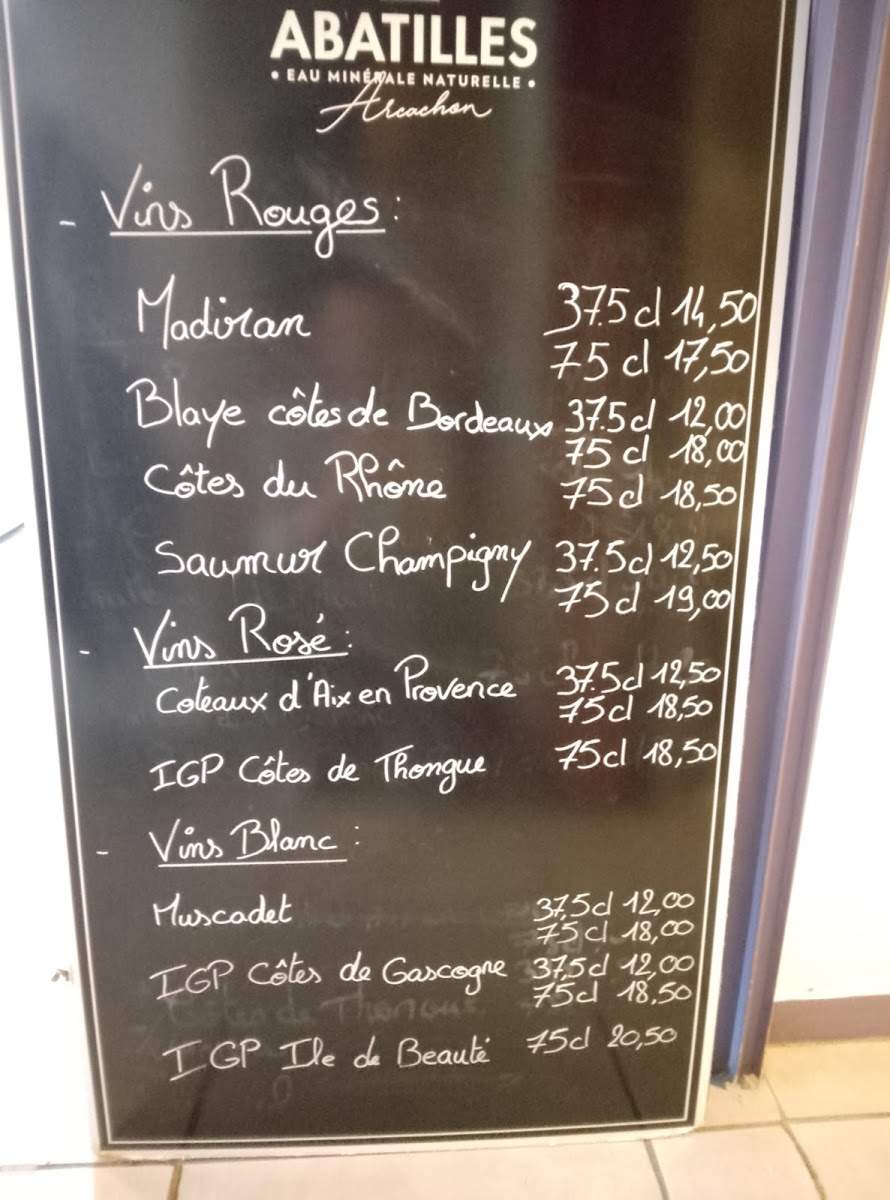 ABATILLES
• EAU MINÉRALE NATURELLE •
Arcachon
- Vins Rouges :
Madiran 37.5 cl 14,50
75 cl 17,50
Blaye côtes de Bordeaux 37.5 cl 12,00
75 cl 18,00
Côtes du Rhône 75 cl 18,50
Saumur Champigny 37.5 cl 12,50
75 cl 19,00
- Vins Rosé :
Coteaux d'Aix en Provence 37.5 cl 12,50
75 cl 18,50
IGP Côtes de Thongue 75 cl 18,50
- Vins Blanc :
Muscadet 37,5 cl 12,00
75 cl 18,00
IGP Côtes de Gascogne 37,5 cl 12,00
75 cl 18,50
Côtes de Thongue
IGP Ile de Beauté 75 cl 20,50